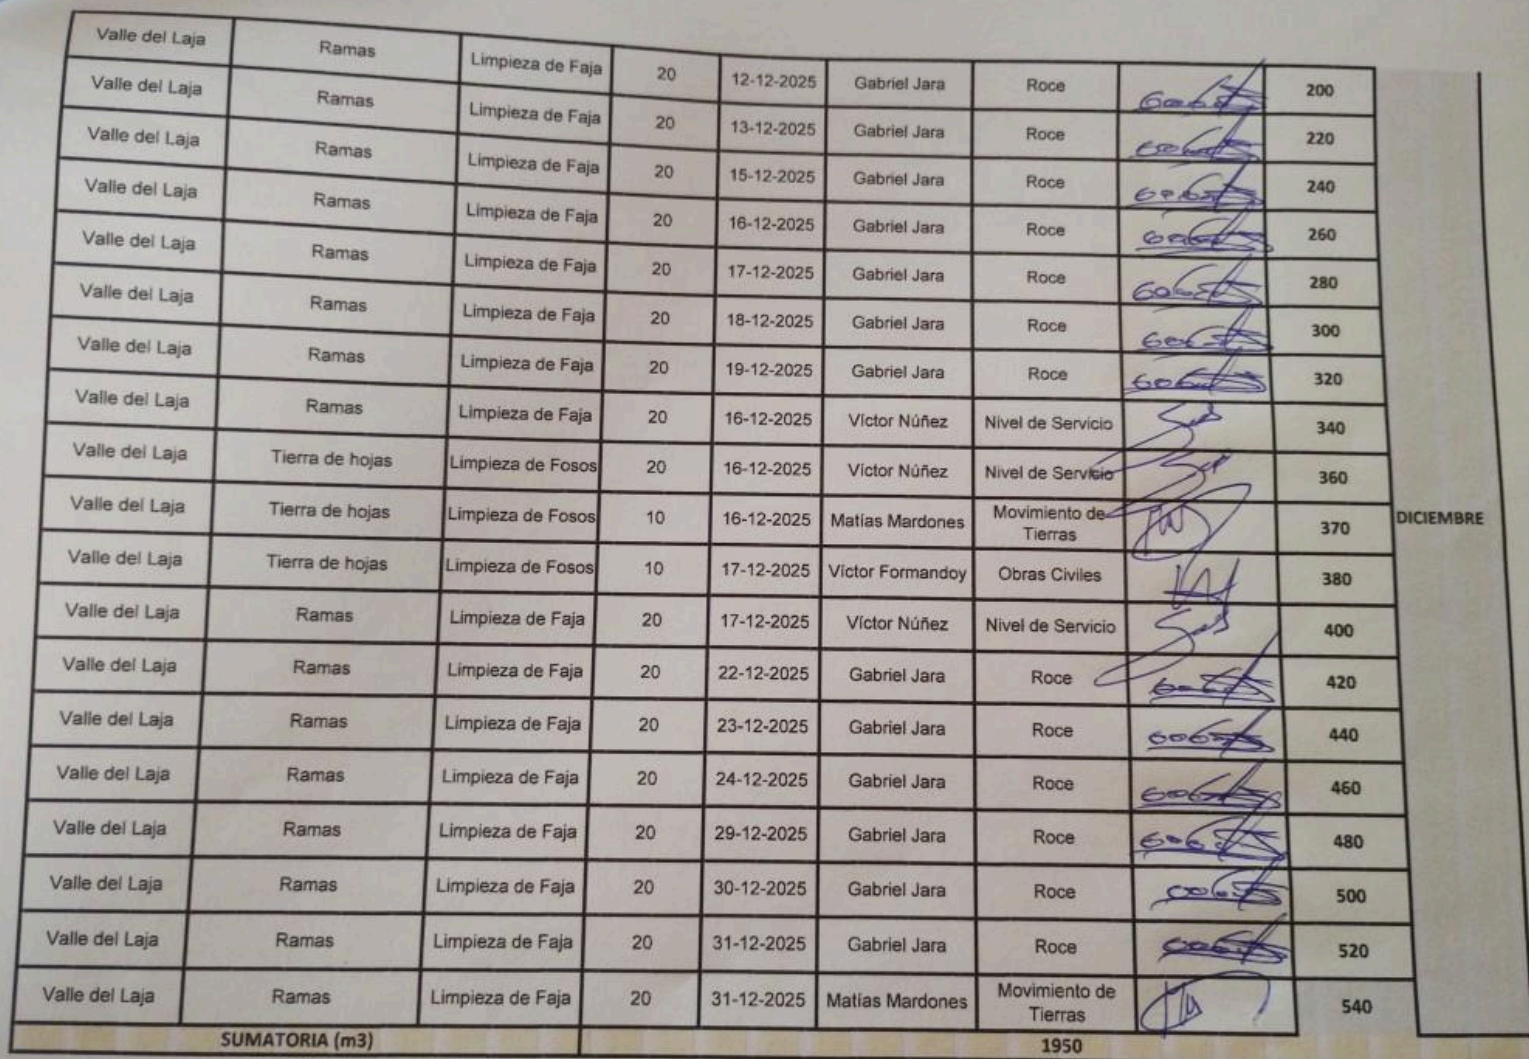 Valle del Laja Ramas Limpieza de Faja 20 12-12-2025 Gabriel Jara Roce 200
Valle del Laja Ramas Limpieza de Faja 20 13-12-2025 Gabriel Jara Roce 220
Valle del Laja Ramas Limpieza de Faja 20 15-12-2025 Gabriel Jara Roce 240
Valle del Laja Ramas Limpieza de Faja 20 16-12-2025 Gabriel Jara Roce 260
Valle del Laja Ramas Limpieza de Faja 20 17-12-2025 Gabriel Jara Roce 280
Valle del Laja Ramas Limpieza de Faja 20 18-12-2025 Gabriel Jara Roce 300
Valle del Laja Ramas Limpieza de Faja 20 19-12-2025 Gabriel Jara Roce 320
Valle del Laja Ramas Limpieza de Faja 20 16-12-2025 Víctor Núñez Nivel de Servicio 340
Valle del Laja Tierra de hojas Limpieza de Fosos 20 16-12-2025 Víctor Núñez Nivel de Servicio 360
Valle del Laja Tierra de hojas Limpieza de Fosos 10 16-12-2025 Matías Mardones Movimiento de Tierras 370 DICIEMBRE
Valle del Laja Tierra de hojas Limpieza de Fosos 10 17-12-2025 Víctor Formandoy Obras Civiles 380
Valle del Laja Ramas Limpieza de Faja 20 17-12-2025 Víctor Núñez Nivel de Servicio 400
Valle del Laja Ramas Limpieza de Faja 20 22-12-2025 Gabriel Jara Roce 420
Valle del Laja Ramas Limpieza de Faja 20 23-12-2025 Gabriel Jara Roce 440
Valle del Laja Ramas Limpieza de Faja 20 24-12-2025 Gabriel Jara Roce 460
Valle del Laja Ramas Limpieza de Faja 20 29-12-2025 Gabriel Jara Roce 480
Valle del Laja Ramas Limpieza de Faja 20 30-12-2025 Gabriel Jara Roce 500
Valle del Laja Ramas Limpieza de Faja 20 31-12-2025 Gabriel Jara Roce 520
Valle del Laja Ramas Limpieza de Faja 20 31-12-2025 Matías Mardones Movimiento de Tierras 540
SUMATORIA (m3) 1950